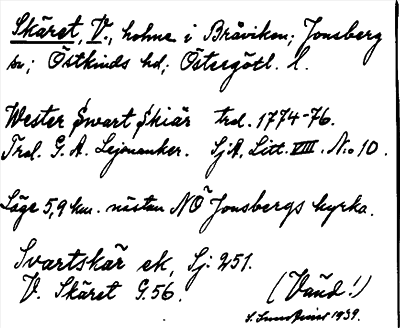 Skäret, V., holme i Bråviken; Jonsberg
sn; Östkinds hd; Östergötl. l.
Wester Swart Skiär trol. 1774-76.
Trol. G. A. Lejonanker. SjA, Litt. VIII. No 10.
Läge 5,9 km. nästan NO Jonsbergs kyrka.
Svartskär ek, Sj. 251.
V. Skäret G. 56.
(Vänd!)
1939.